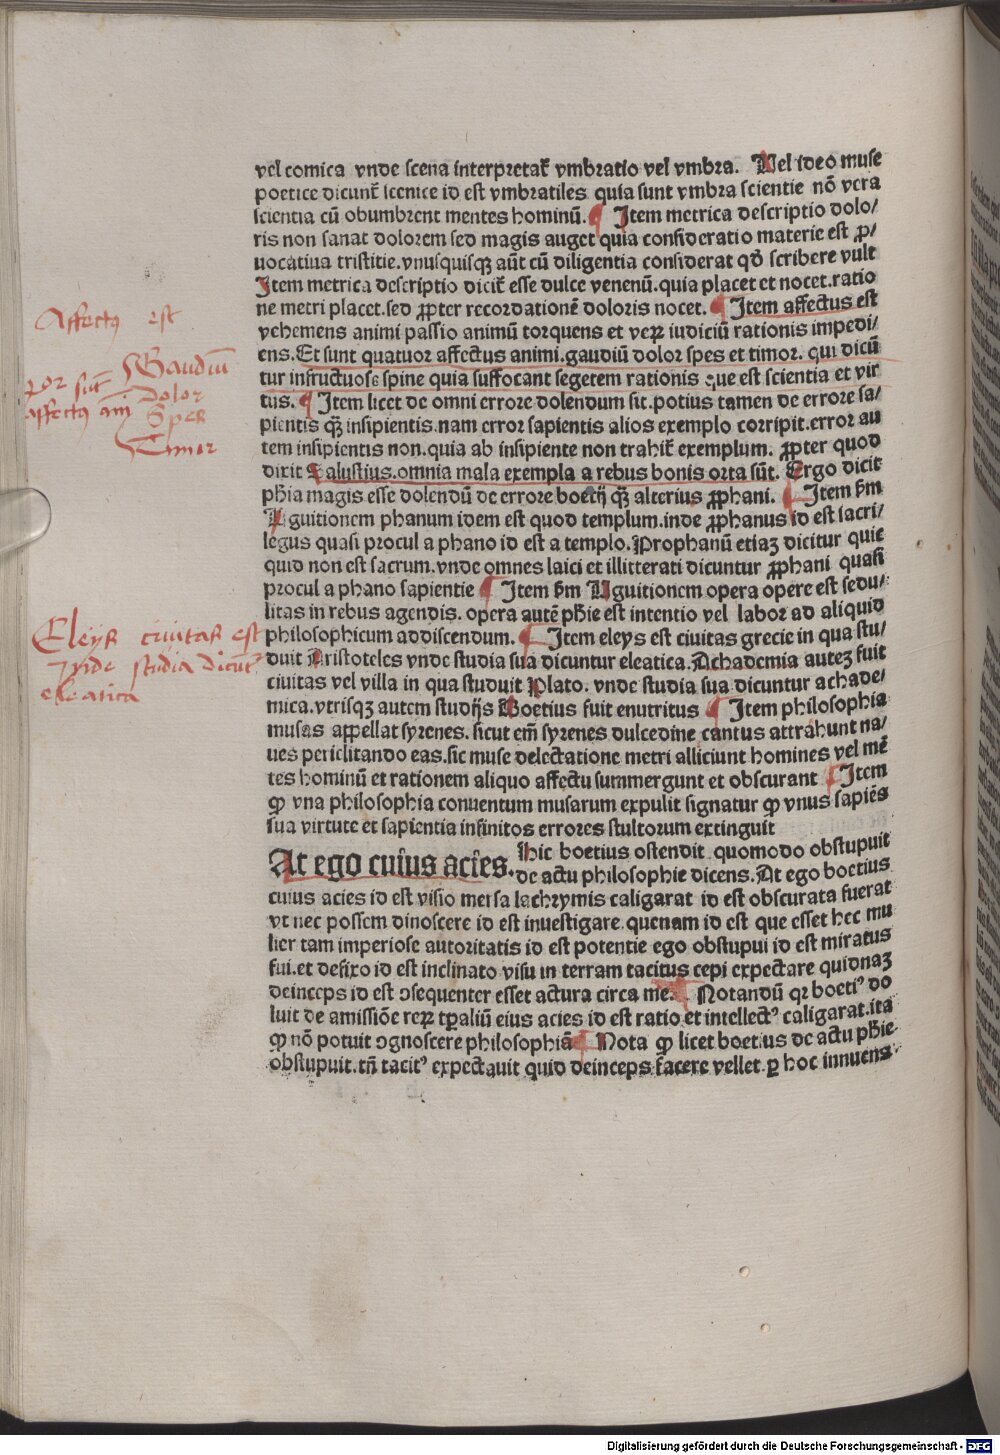 vel comica vnde scena interpretat̄ vmbratio vel vmbra. Vel ideo muse
poetice dicunt̄ scenice id est vmbratiles quia sunt vmbra scientie nō vera
scientia cū obumbrent mentes hominū. ¶ Item metrica descriptio dolo/
ris non sanat dolorem sed magis auget quia consideratio materie est ꝓ/
uocatiua tristitie.vnusquisqꝫ aūt cū diligentia considerat qđ scribere vult
Item metrica descriptio dicit̄ esse dulce venenū.quia placet et nocet.ratio
ne metri placet.sed ꝓpter recordationē doloris nocet. ¶ Item affectus est
vehemens animi passio animū torquens et veꝝ iudiciū rationis impedi/
ens.Et sunt quatuor affectus animi.gaudiū dolor spes et timor. qui dicū
tur infructuose spine quia suffocant segetem rationis que est scientia et vir
tus. ¶ Item licet de omni errore dolendum sit.potius tamen de errore sa/
pientis qꝫ̄ insipientis.nam error sapientis alios exemplo corripit.error au
tem insipientis non.quia ab insipiente non trahit̄ exemplum. ꝓpter quod
dixit Salustius.omnia mala exempla a rebus bonis orta sūt. Ergo dicit
ph̄ia magis esse dolendū de errore boecij qꝫ̄ alterius ꝓphani. ¶ Item ẜm
Uguitionem phanum idem est quod templum.inde ꝓphanus id est sacri/
legus quasi procul a phano id est a templo.Prophanū etiaꝫ dicitur quic
quid non est sacrum.vnde omnes laici et illitterati dicuntur ꝓphani quasi
procul a phano sapientie ¶ Item ẜm Uguitionem opera opere est sedu/
litas in rebus agendis. opera autē ph̄ie est intentio vel labor ad aliquid
philosophicum addiscendum. ¶ Item eleys est ciuitas grecie in qua stu/
duit Aristoteles vnde studia sua dicuntur eleatica.Achademia auteꝫ fuit
ciuitas vel villa in qua studuit Plato. vnde studia sua dicuntur achade/
mica.vtrisqꝫ autem studijs Boetius fuit enutritus ¶ Item philosophia
musas appellat syrenes. sicut em̄ syrenes dulcedine cantus attrahunt na/
ues periclitando eas.sic muse delectatione metri alliciunt homines vel mē
tes hominū et rationem aliquo affectu summergunt et obscurant ¶ Item
ꝙ vna philosophia conuentum musarum expulit signatur ꝙ vnus sapiēs
sua virtute et sapientia infinitos errores stultorum extinguit
At ego cuius acies. Hic boetius ostendit quomodo obstupuit
de actu philosophie dicens.At ego boetius
cuius acies id est visio mersa lachrymis caligarat id est obscurata fuerat
vt nec possem dinoscere id est inuestigare quenam id est que esset hec mu
lier tam imperiose autoritatis id est potentie ego obstupui id est miratus
fui.et defixo id est inclinato visu in terram tacitus cepi expectare quidnaꝫ
deinceps id est ↄsequenter esset actura circa me. ¶ Notandū qꝛ boetiꝰ do
luit de amissiōe reꝝ tꝑaliū eius acies id est ratio et intellectꝰ caligarat.ita
ꝙ nō potuit ↄgnoscere philosophiā ¶ Nota ꝙ licet boetius de actu ph̄ie
obstupuit.tn̄ tacitꝰ expectauit quid deinceps facere vellet.ꝑ hoc innuens
Affectꝰ est
Gaudiū
qͦr sūt Dolor
affectꝰ aīi Spes
Timor
Eleys ciuitas est
Inde studia dicūt̄
eleatica
Digitalisierung gefördert durch die Deutsche Forschungsgemeinschaft - DFG